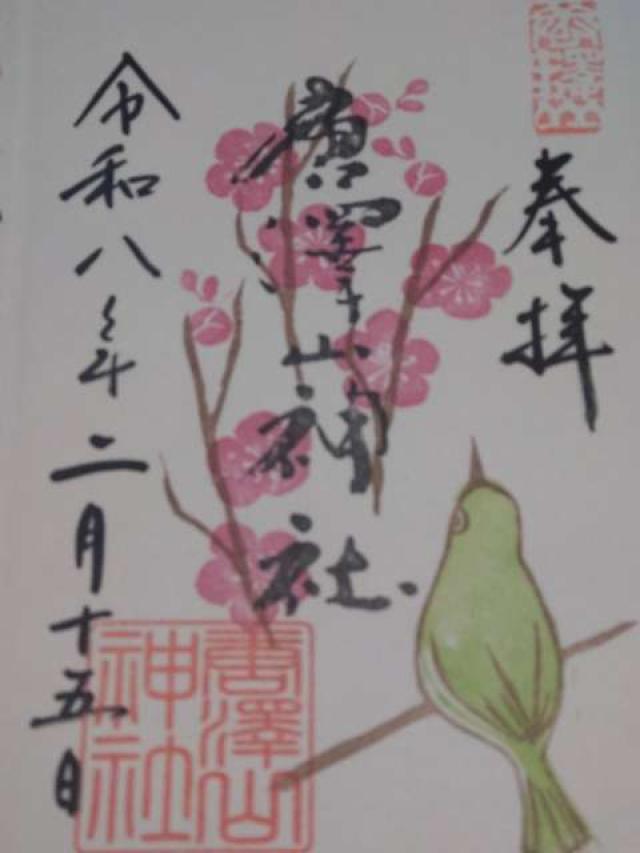 奉拝
唐澤山神社
令和八年二月十五日
唐澤山
神社